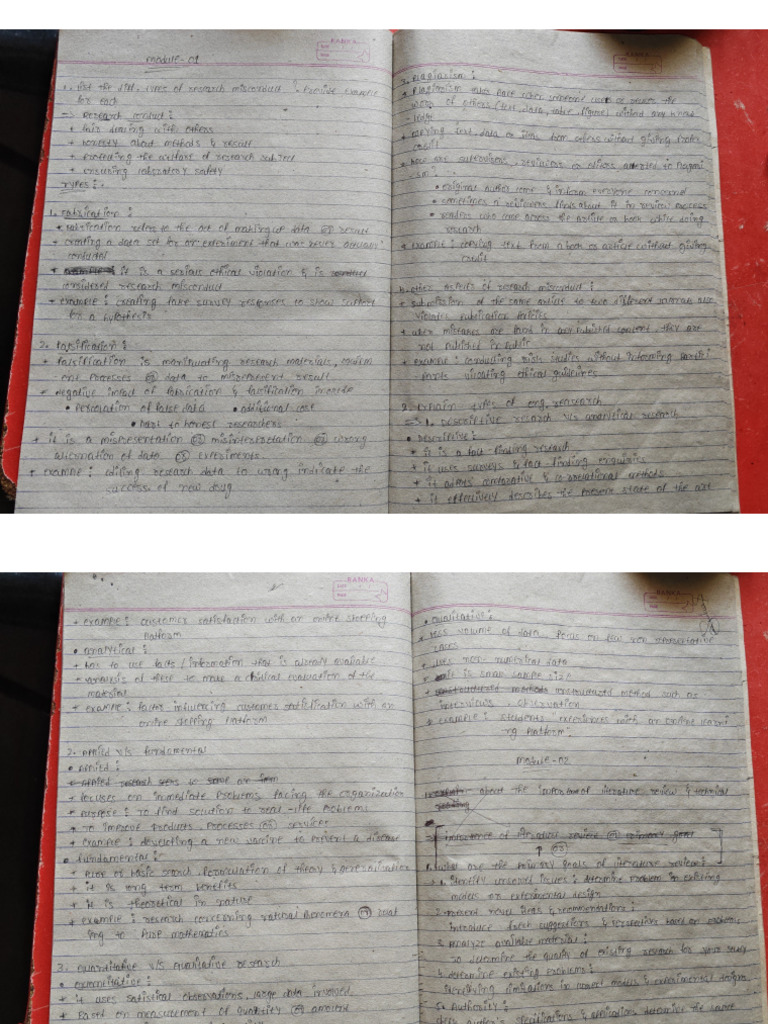 module-01
1. list the diff. types of research misconduct. Provide example
for each
=> Research conduct :
+ fair dealing with others
+ honesty about methods & result
+ protecting the welfare of research subject
+ ensuring laboratory safety
Types :
1. Fabrication :
+ fabrication refers to the act of making up data or result
+ creating a data set for an experiment that was never actually
conducted
+ it is a serious ethical violation & is
considered research misconduct
+ example : creating fake survey responses to show support
for a hypothesis
2. Falsification :
+ falsification is manipulating research materials,
processes or data to misrepresent result
+ Negative impact of fabrication & falsification
• of false data • additional cost
• to honest researchers
+ it is a misrepresentation or misinterpretation or wrong
of data or experiments
+ example : editing research data to wrong indicate the
success of new drug
3. Plagiarism :
+ plagiarism takes place when someone uses or reuses the
work of others (text, data, table, figure) without any
+ copying text, data or idea from others without giving proper
credit
+ how are supervisors, reviewers or others alerted to
• original author come & inform everyone concerned
• sometimes a reviewers finds about it in review process
• readers who come across the article or book while doing
research
+ example : copying text from a book or article without giving
credit
4. other aspects of research misconduct :
+ submission of the same article to two different journals also
violates publication policies
+ when mistakes are found in any published content they are
not published in
+ example : conducting studies without informing partici
pants violating ethical guidelines
2. Explain types of eng. research
=> 1. Descriptive research v/s analytical research
• Descriptive :
+ it is a fact-finding research
+ it uses surveys & fact-finding enquiries
+ it adopts comparative & co-relational methods
+ it effectively describes the present state of the art
+ example : customer satisfaction with an online shopping
platform
• analytical :
+ has to use facts / information that is already available
+ analysis of these to make a critical evaluation of the
material
+ example : factors influencing customer satisfaction with an
online shopping platform
2. applied v/s fundamental
• applied :
+ focuses on immediate problems facing the organization
+ purpose : to find solution to real-life problems
+ to improve products, processes or services
+ example : developing a new vaccine to prevent a disease
• fundamental :
+ pure or basic search, formulation of theory & generalization
+ it is long term benefits
+ it is theoretical in nature
+ example : research concerning natural phenomena or
ing to pure mathematics
3. quantitative v/s qualitative research
• quantitative :
+ it uses statistical observations, large data involved
+ based on measurement of quantity or amount
• qualitative :
+ less volume of data, focus on few non representative
cases
+ uses non-numerical data
+ it is small sample size
+ unstructured method such as
interviews, observation
+ example : students' experiences with an online learni
ng platform.
module-02
about the importance of literature review & technical
reading
importance of literature review or primary goal
(or)
1. what are the primary goals of literature review :
+ 1. identify unsolved issues : determine problem in existing
models or experimental design
2. present novel ideas & recommendations :
introduce fresh suggestions & perspectives based on
3. analyze available material :
to determine the quality of existing research for your study
4. determine existing problems :
identifying limitations in current models & experimental designs
5. Authority :